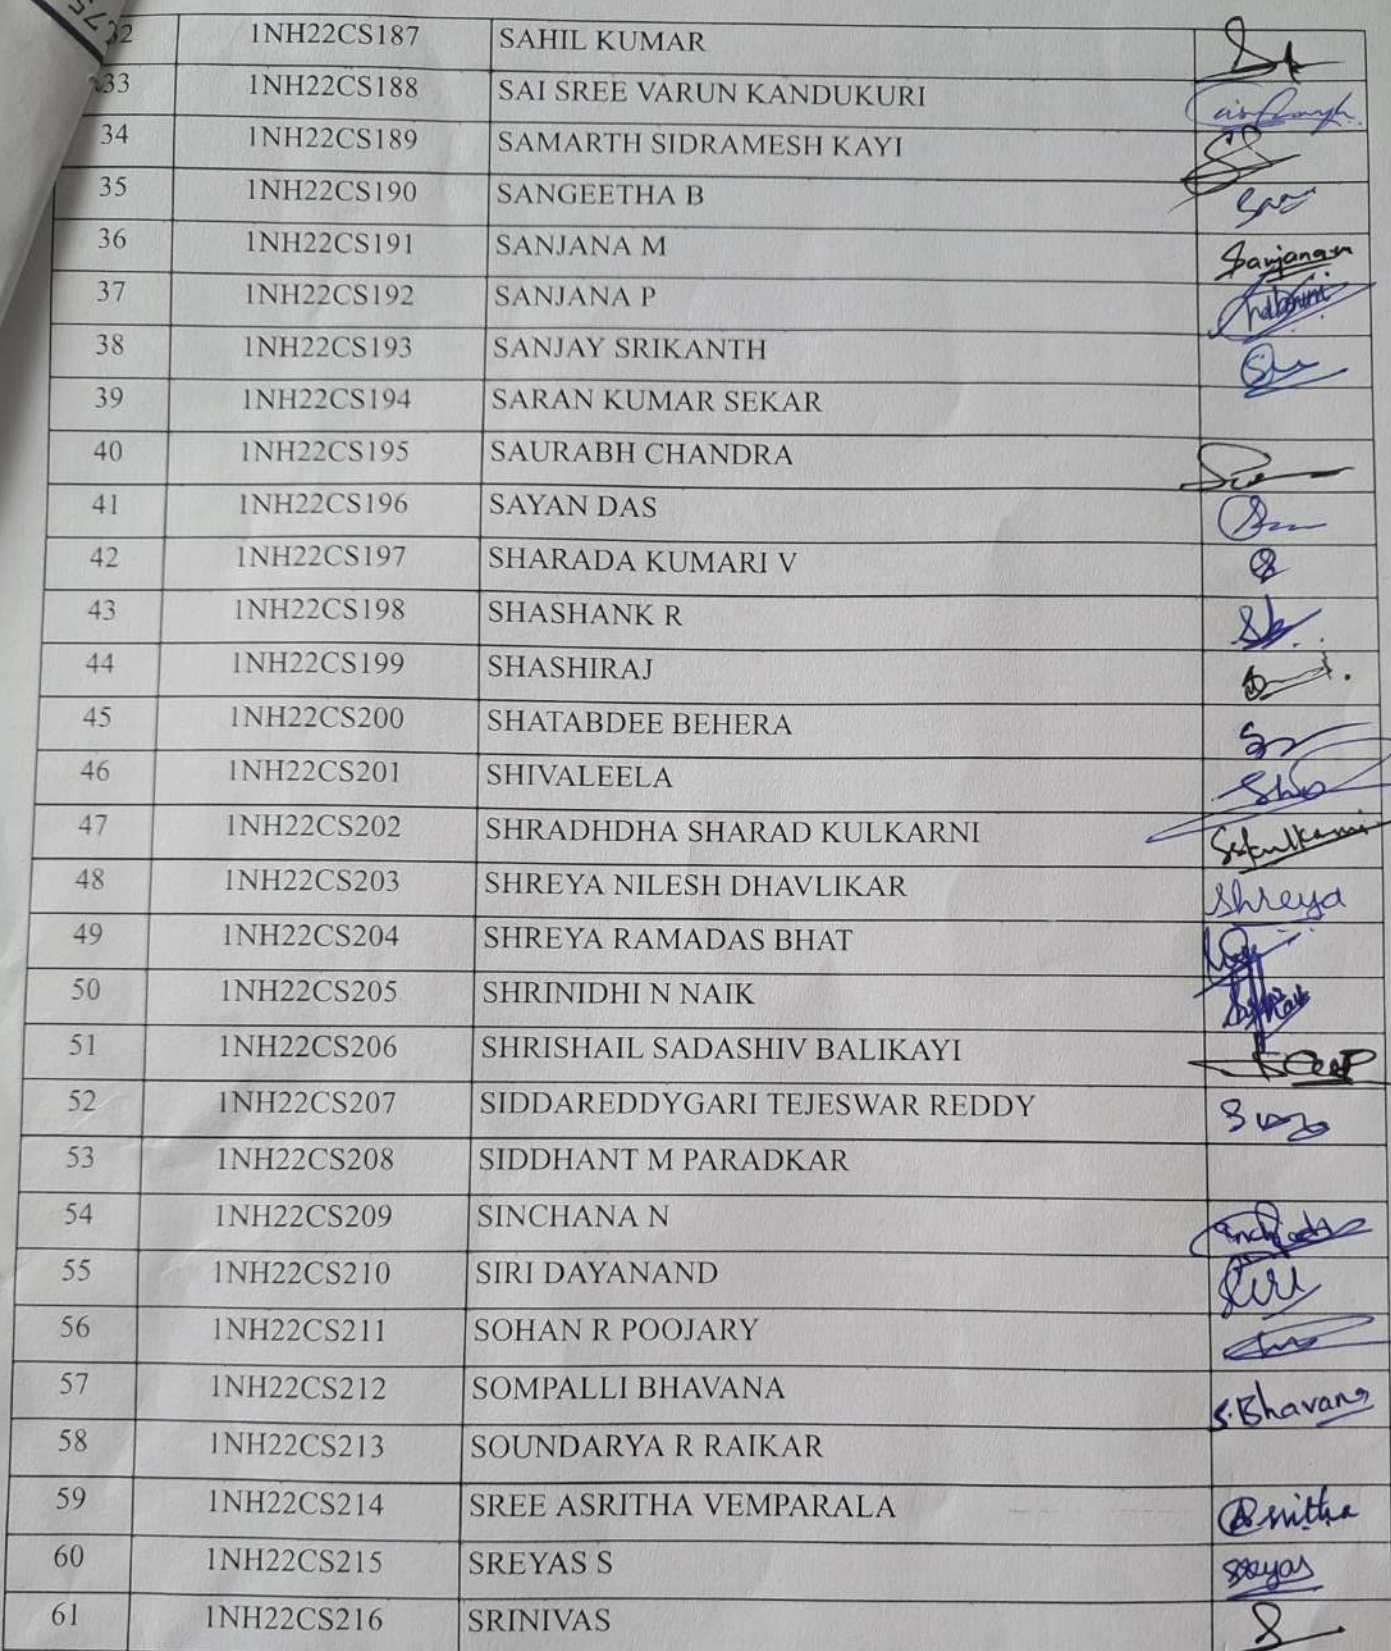 32 1NH22CS187 SAHIL KUMAR
33 1NH22CS188 SAI SREE VARUN KANDUKURI
34 1NH22CS189 SAMARTH SIDRAMESH KAYI
35 1NH22CS190 SANGEETHA B
36 1NH22CS191 SANJANA M Sanjanam
37 1NH22CS192 SANJANA P
38 1NH22CS193 SANJAY SRIKANTH
39 1NH22CS194 SARAN KUMAR SEKAR
40 1NH22CS195 SAURABH CHANDRA
41 1NH22CS196 SAYAN DAS
42 1NH22CS197 SHARADA KUMARI V
43 1NH22CS198 SHASHANK R
44 1NH22CS199 SHASHIRAJ
45 1NH22CS200 SHATABDEE BEHERA
46 1NH22CS201 SHIVALEELA
47 1NH22CS202 SHRADHDHA SHARAD KULKARNI Sskulkarni
48 1NH22CS203 SHREYA NILESH DHAVLIKAR Shreya
49 1NH22CS204 SHREYA RAMADAS BHAT
50 1NH22CS205 SHRINIDHI N NAIK
51 1NH22CS206 SHRISHAIL SADASHIV BALIKAYI
52 1NH22CS207 SIDDAREDDYGARI TEJESWAR REDDY
53 1NH22CS208 SIDDHANT M PARADKAR
54 1NH22CS209 SINCHANA N
55 1NH22CS210 SIRI DAYANAND Siri
56 1NH22CS211 SOHAN R POOJARY
57 1NH22CS212 SOMPALLI BHAVANA S.Bhavana
58 1NH22CS213 SOUNDARYA R RAIKAR
59 1NH22CS214 SREE ASRITHA VEMPARALA Asritha
60 1NH22CS215 SREYAS S Sreyas
61 1NH22CS216 SRINIVAS